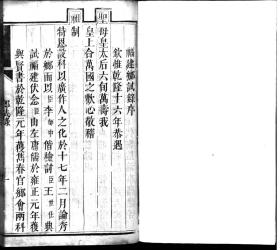 福建鄉試錄序
欽惟乾隆十六年恭遇
聖
母皇太后六旬萬壽我
皇上合萬國之歡心敬稱
祝
制
特恩設科以廣作人之化於十七年二月論秀
於鄉而以李 偕檢討臣王世仕典
試福建伏念臣由左庸儒於雍正元年獲
與賢書於乾隆元年萬雋春官鄉會兩科